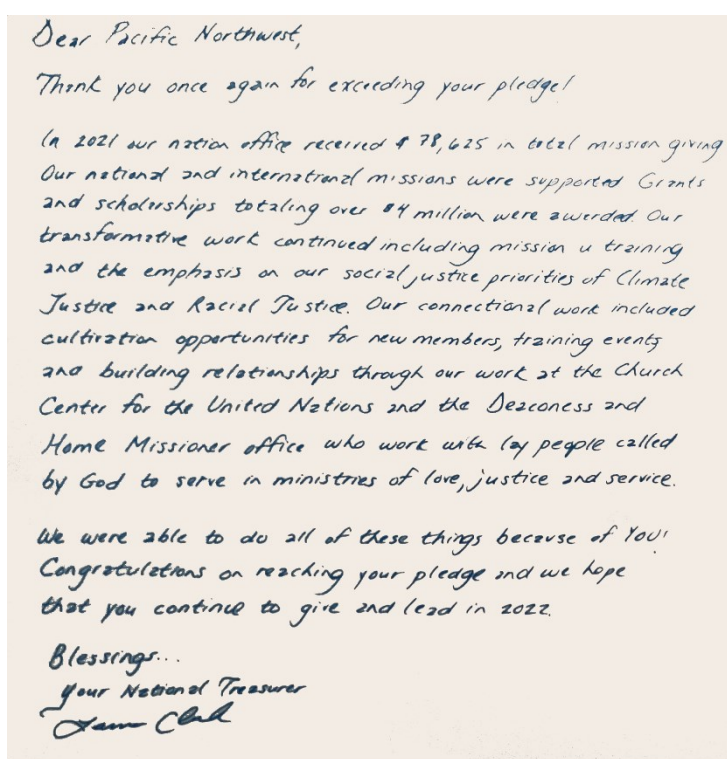 Dear Pacific Northwest,
Thank you once again for exceeding your pledge!
In 2021 our nation office received $78,625 in total mission giving
Our national and international missions were supported Grants
and scholarships totaling over $4 million were awarded. Our
transformative work continued including mission u training
and the emphasis on our social justice priorities of Climate
Justice and Racial Justice. Our connectional work included
cultivation opportunities for new members, training events
and building relationships through our work at the Church
Center for the United Nations and the Deaconess and
Home Missioner office who work with lay people called
by God to serve in ministries of love, justice and service.
We were able to do all of these things because of You!
Congratulations on reaching your pledge and we hope
that you continue to give and lead in 2022.
Blessings...
Your National Treasurer